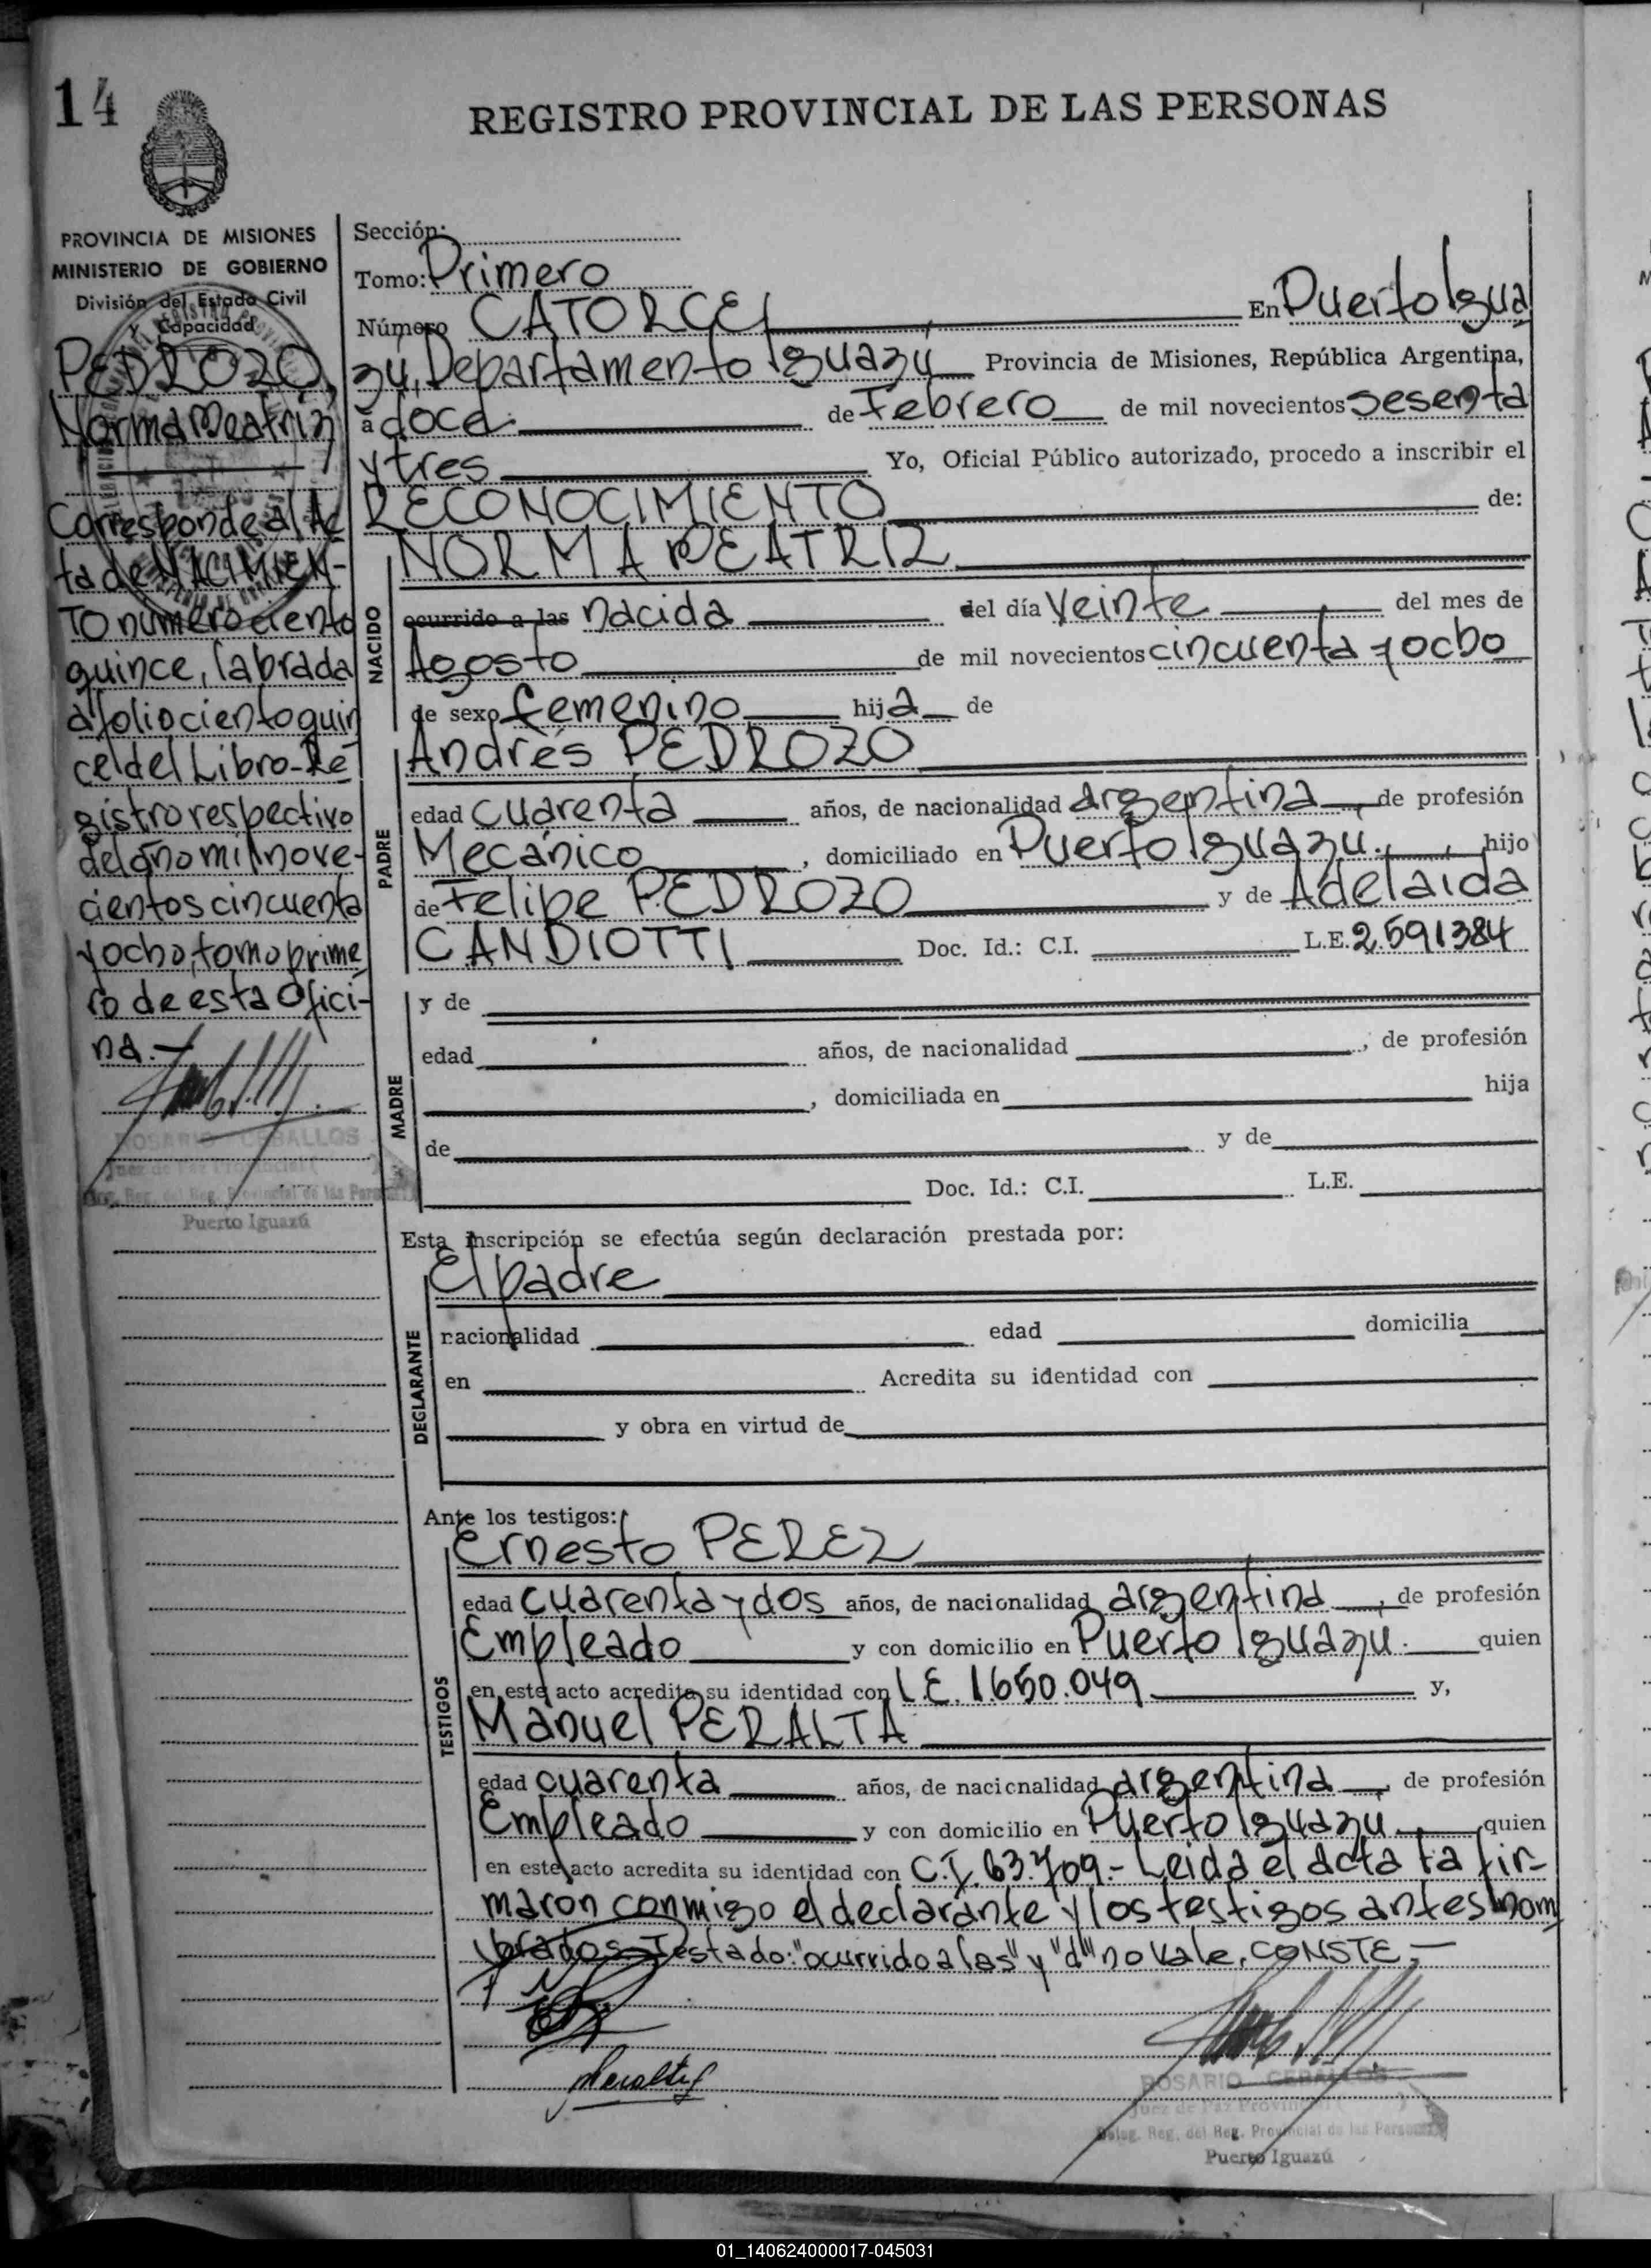 14
REGISTRO PROVINCIAL DE LAS PERSONAS
PROVINCIA DE MISIONES
MINISTERIO DE GOBIERNO
División del Estado Civil
y Capacidad
PEDROZO,
Norma Beatriz
Corresponde al Ac
ta de NACIMIEN-
TO numero ciento
quince, labrada
al folio ciento quin
ce del Libro-Re
gistro respectivo
del año mil nove-
cientos cincuenta
y ocho, tomo prime
ro de esta Ofici-
na.-
ROSARIO CEBALLOS
Juez de Paz Provincial
Enc. Reg. del Reg. Provincial de las Personas
Puerto Iguazú
Sección:
Tomo: Primero
Número CATORCE, En Puerto Igua
zú, Departamento Iguazú Provincia de Misiones, República Argentina,
a doce de Febrero de mil novecientos sesenta
y tres Yo, Oficial Público autorizado, procedo a inscribir el
RECONOCIMIENTO de:
NORMA BEATRIZ
NACIDO
ocurrido a las nacida del día Veinte del mes de
Agosto de mil novecientos cincuenta y ocho
de sexo femenino hija de
PADRE
Andrés PEDROZO
edad cuarenta años, de nacionalidad argentina, de profesión
Mecánico, domiciliado en Puerto Iguazu., hijo
de Felipe PEDROZO y de Adelaida
CANDIOTTI Doc. Id.: C.I. L.E. 2.591384
MADRE
y de
edad años, de nacionalidad , de profesión
, domiciliada en hija
de y de
Doc. Id.: C.I. L.E.
Esta inscripción se efectúa según declaración prestada por:
DECLARANTE
El padre
nacionalidad edad domicilia
en Acredita su identidad con
y obra en virtud de
Ante los testigos:
TESTIGOS
Ernesto PEREZ
edad cuarenta y dos años, de nacionalidad argentina, de profesión
Empleado y con domicilio en Puerto Iguazu. quien
en este acto acredita su identidad con L.E. 1.650.049 y,
Manuel PERALTA
edad cuarenta años, de nacionalidad argentina, de profesión
Empleado y con domicilio en Puerto Iguazu, quien
en este acto acredita su identidad con C.I. 63.709.- Leida el acta la fir-
maron conmigo el declarante y los testigos antes nom
brados. Testado: "ocurrido a las" y "d" no vale. CONSTE.-
Peralta
ROSARIO CEBALLOS
Juez de Paz Provincial
Deleg. Reg. del Reg. Provincial de las Personas
Puerto Iguazú
01_140624000017-045031